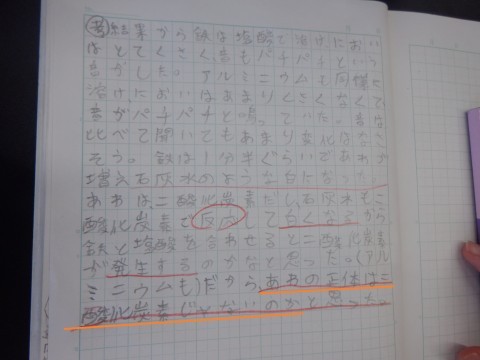 考 結果から鉄は塩酸で溶けにおい
はとてくさく、音もパチパチという
音がした。アルミニウムも同様に
溶け、においはあまりくさくなくて
音がパチパチと鳴っていた。音は
比べて聞いてもあまり変化はなさ
そう。鉄は1分半ぐらいであわが
増え石灰水のような白になった。
あわは二酸化炭素だし、石灰水も二
酸化炭素で反応して白くなるから
鉄と塩酸を合わせると二酸化炭素
が発生するのかなと思った。(アル
ミニウムも)だから、あわの正体は二
酸化炭素じゃないのかと思った。